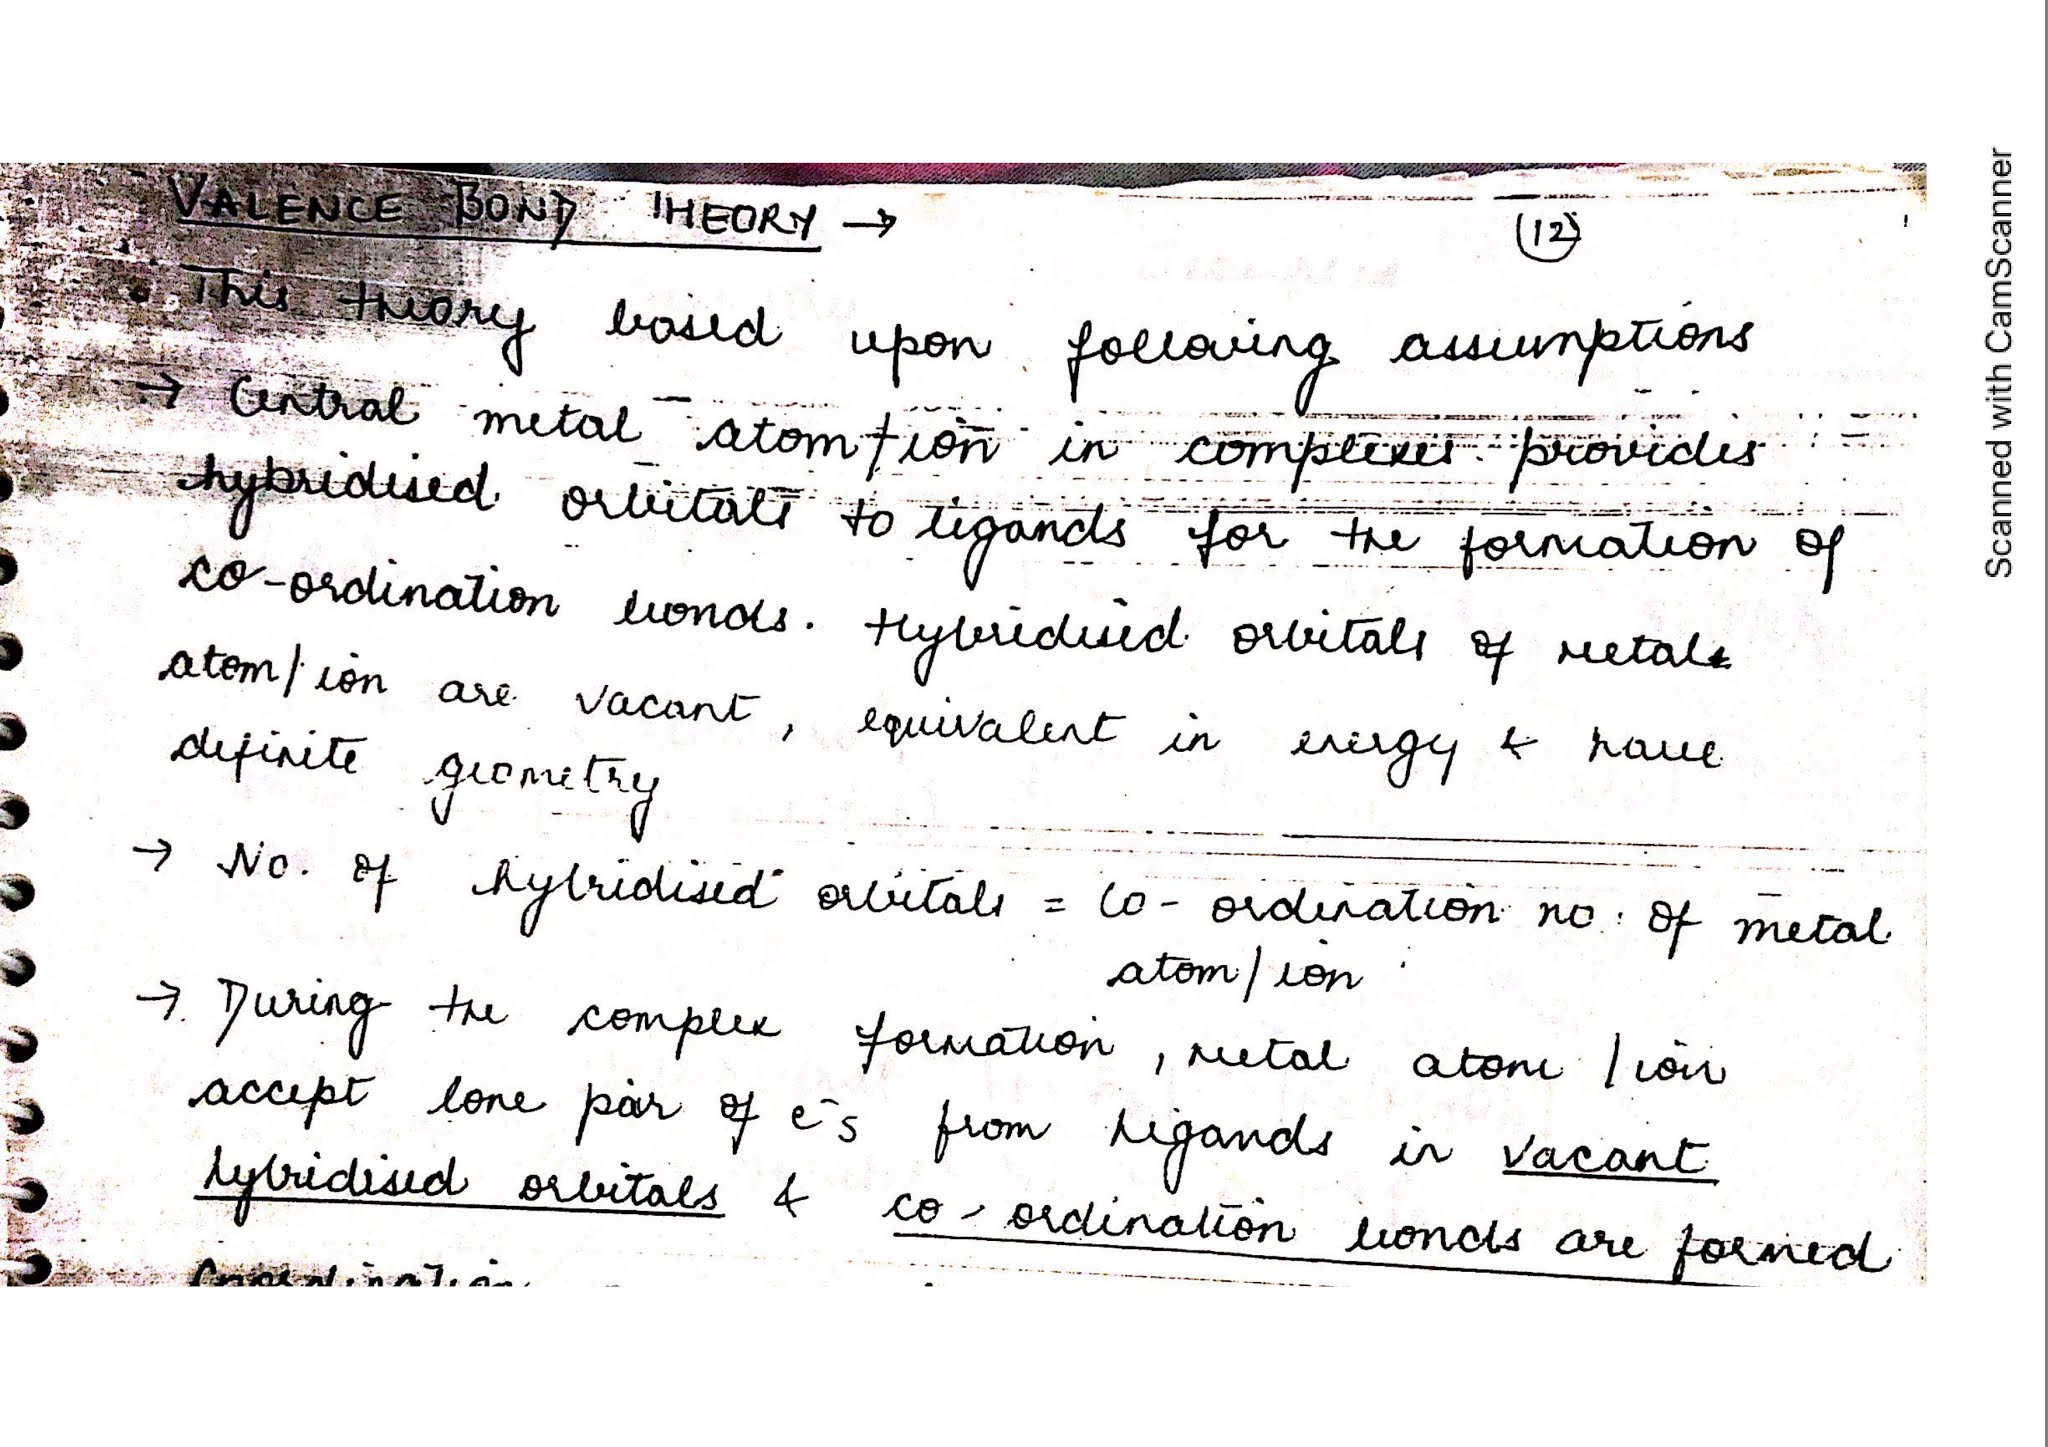 VALENCE BOND THEORY →
(12)
This theory based upon following assumptions
→ Central metal atom/ion in complexes provides
hybridised orbitals to ligands for the formation of
co-ordination bonds. Hybridised orbitals of metal
atom/ion are vacant, equivalent in energy & have
definite geometry
→ No. of hybridised orbitals = Co-ordination no. of metal
atom/ion
→ During the complex formation, metal atom/ion
accept lone pair of e⁻s from ligands in vacant
hybridised orbitals & co-ordination bonds are formed
Scanned with CamScanner